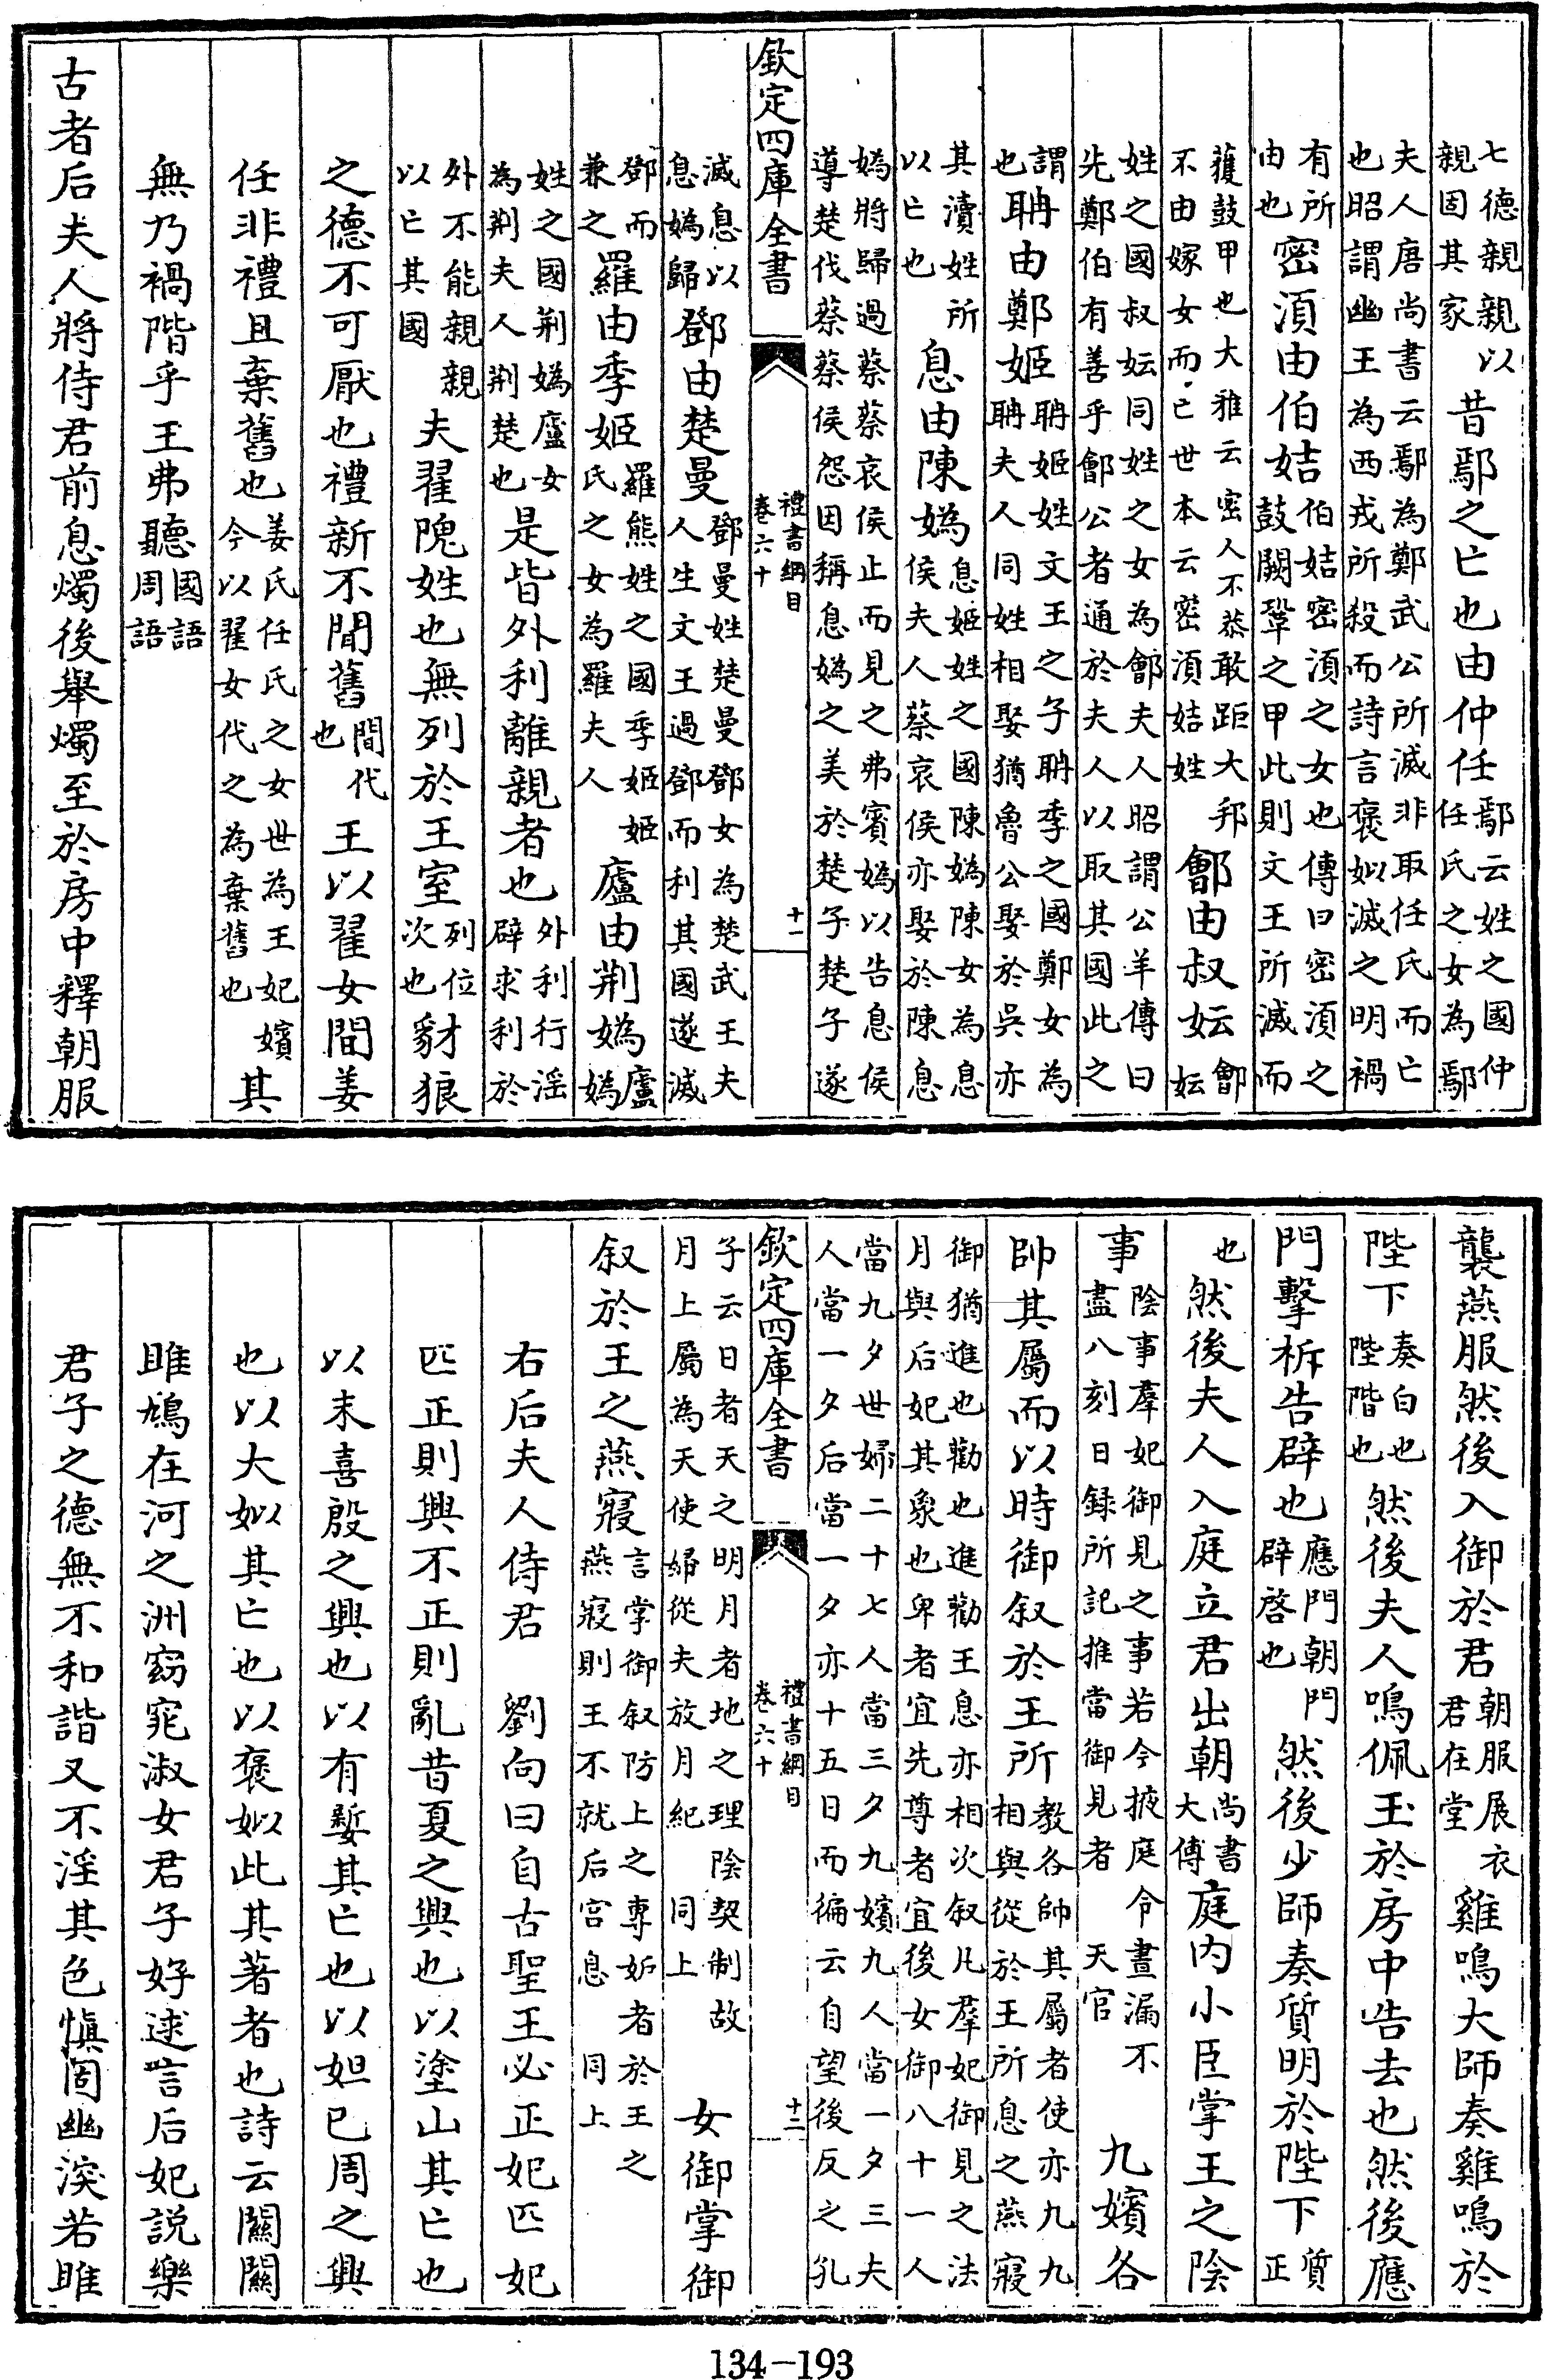 七德親親以親固其家昔鄢之亡也由仲任鄢云姓之國仲任氏之女為鄢
夫人唐尚書云鄢為鄭武公所滅非取任氏而亡也昭謂幽王為西戎所殺而詩言褒姒滅之明禍
有所由也密湏由伯姞伯姞密湏之女也傳曰密湏之鼓闕鞏之甲此則文王所滅而
獲鼓甲也大雅云密人不恭敢距大邦不由嫁女而亡世本云密湏姞姓鄶由叔妘鄶妘
姓之國叔妘同姓之女為鄶夫人昭謂公羊傳曰先鄭伯有善乎鄶公者通於夫人以取其國此之
謂也聃由鄭姬聃姬姓文王之子聃季之國鄭女為聃夫人同姓相娶猶魯公娶於吳亦
其瀆姓所以亡也息由陳媯息姬姓之國陳媯陳女為息侯夫人蔡哀侯亦娶於陳息
媯將歸過蔡蔡哀侯止而見之弗賓媯以告息侯導楚伐蔡蔡侯怨因稱息媯之美於楚子楚子遂
欽定四庫全書 禮書綱目 卷六十 十一
滅息以息媯歸鄧由楚曼鄧曼姓楚曼鄧女為楚武王夫人生文王過鄧而利其國遂滅
鄧而兼之羅由季姬羅熊姓之國季姬姬氏之女為羅夫人廬由荆媯廬媯
姓之國荆媯廬女為荆夫人荆楚也是皆外利離親者也外利行淫辟求利於
外不能親親以亡其國夫翟隗姓也無列於王室列位次也豺狼
之德不可厭也禮新不間舊間代也王以翟女間姜
任非禮且棄舊也姜氏任氏之女世為王妃嬪今以翟女代之為棄舊也其
無乃禍階乎王弗聽國語周語
古者后夫人將侍君前息燭後舉燭至於房中釋朝服
襲燕服然後入御於君朝服展衣君在堂雞鳴大師奏雞鳴於
陛下奏白也陛階也然後夫人鳴佩玉於房中告去也然後應
門擊柝告辟也應門朝門辟啓也然後少師奏質明於陛下質正
也然後夫人入庭立君出朝尚書大傳庭內小臣掌王之陰
事陰事羣妃御見之事若今掖庭令晝漏不盡八刻日録所記推當御見者天官九嬪各
帥其屬而以時御叙於王所教各帥其屬者使亦九九相與從於王所息之燕寢
御猶進也勸也進勸王息亦相次叙凡羣妃御見之法月與后妃其象也卑者宜先尊者宜後女御八十一人
當九夕世婦二十七人當三夕九嬪九人當一夕三夫人當一夕后當一夕亦十五日而徧云自望後反之孔
欽定四庫全書 禮書綱目 卷六十 十二
子云日者天之明月者地之理陰契制故月上屬為天使婦從夫放月紀同上女御掌御
叙於王之燕寢言掌御叙防上之專妒者於王之燕寢則王不就后宫息同上
右后夫人侍君 劉向曰自古聖王必正妃匹妃
匹正則興不正則亂昔夏之興也以塗山其亡也
以末喜殷之興也以有㜪其亡也以妲已周之興
也以大姒其亡也以褒姒此其著者也詩云關關
雎鳩在河之洲窈窕淑女君子好逑言后妃説樂
君子之德無不和諧又不淫其色愼固幽深若雎
134-193